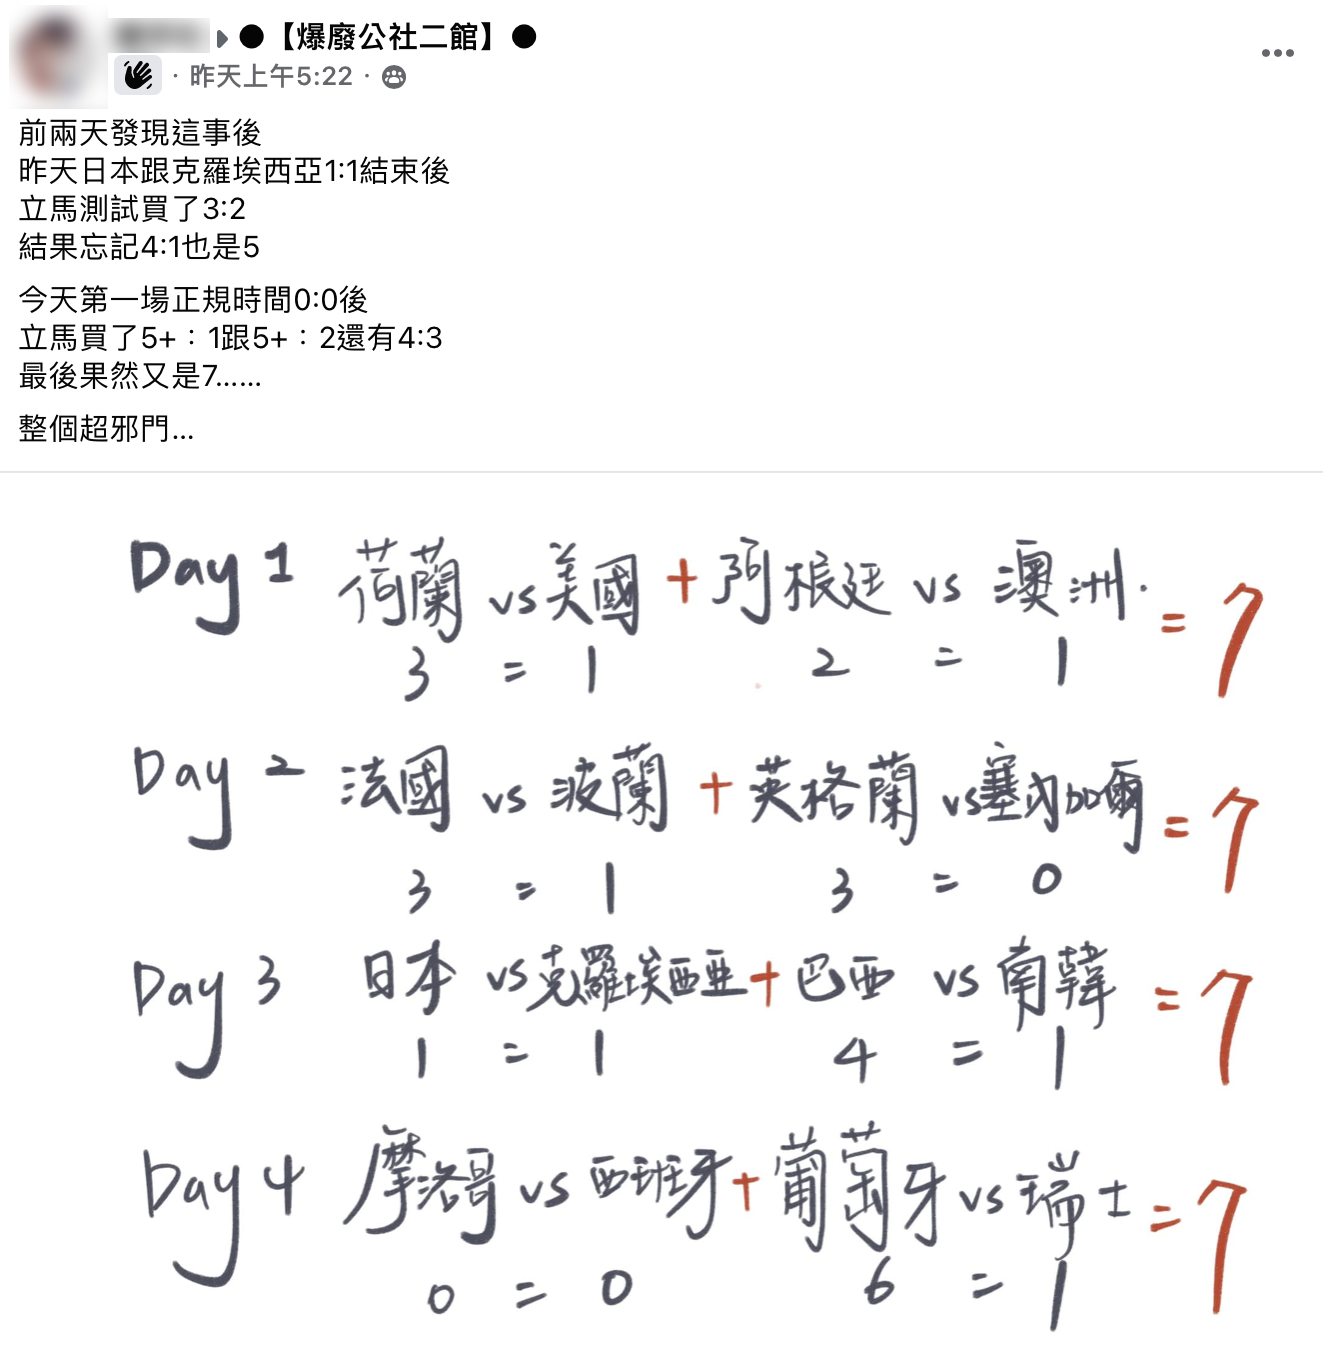 ●【爆廢公社二館】●
· 昨天上午5:22 ·
前兩天發現這事後
昨天日本跟克羅埃西亞1:1結束後
立馬測試買了3:2
結果忘記4:1也是5
今天第一場正規時間0:0後
立馬買了5+：1跟5+：2還有4:3
最後果然又是7......
整個超邪門...
Day 1 荷蘭 vs 美國 + 阿根廷 vs 澳洲. = 7
3 = 1 2 = 1
Day 2 法國 vs 波蘭 + 英格蘭 vs 塞內加爾 = 7
3 = 1 3 = 0
Day 3 日本 vs 克羅埃西亞 + 巴西 vs 南韓 = 7
1 = 1 4 = 1
Day 4 摩洛哥 vs 西班牙 + 葡萄牙 vs 瑞士 = 7
0 = 0 6 = 1